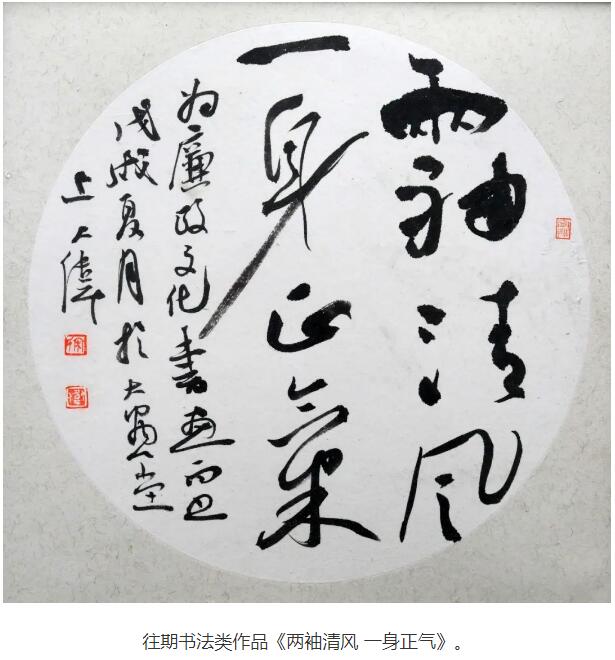 兩袖清风
一身正氣
为廉政文化書画
戊戌夏月於大堂
大偉
往期书法类作品《两袖清风 一身正气》。